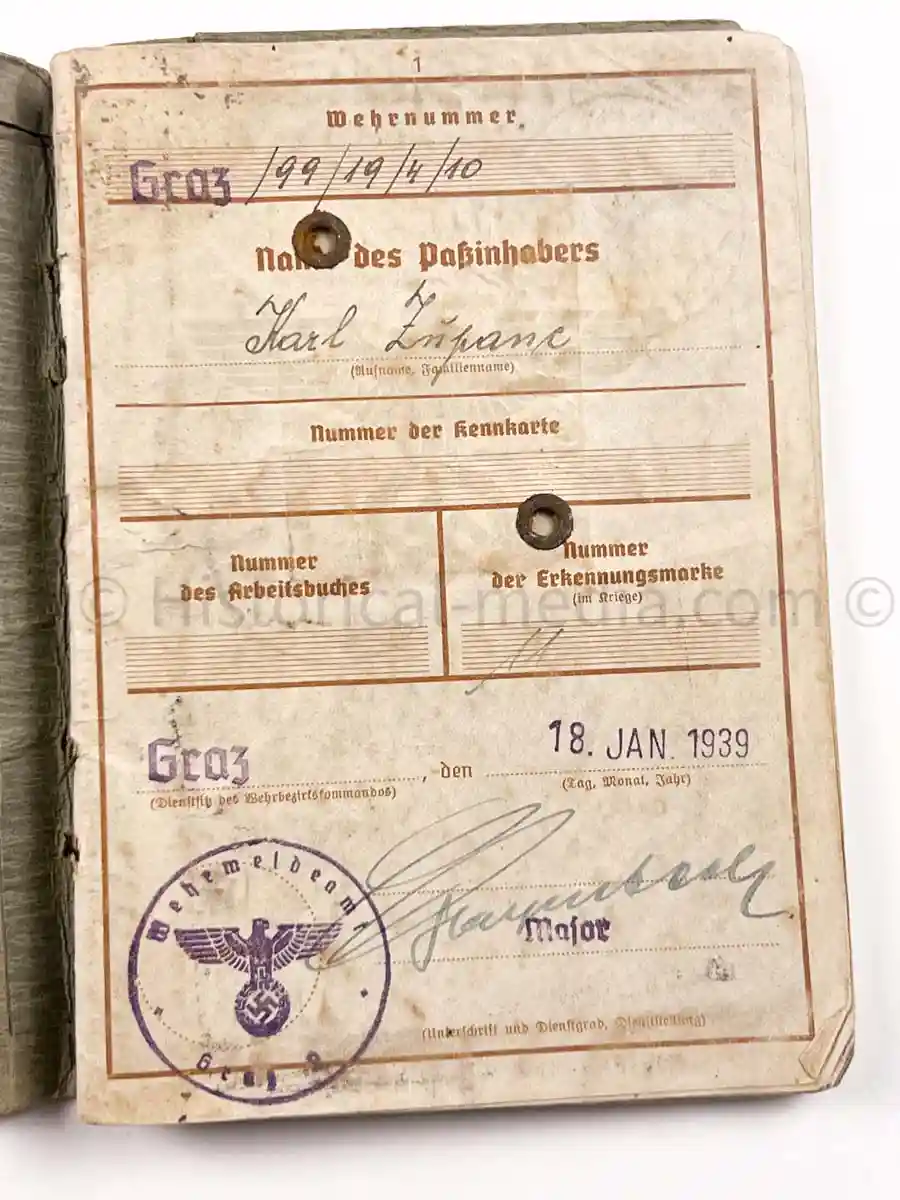 1
Wehrnummer
Graz /99/19/4/10
des Paßinhabers
Karl Zupanc
(Rufname, Familienname)
Nummer der Kennkarte
Nummer
des Arbeitsbuches
Nummer
der Erkennungsmarke
(im Kriege)
© Historical-media.com ©
Graz, den 18. JAN. 1939
(Dienstsitz des Wehrbezirkskommandos)
(Tag, Monat, Jahr)
Major
(Unterschrift und Dienstgrad, Dienststellung)
Wehrmeldeamt
Graz 2